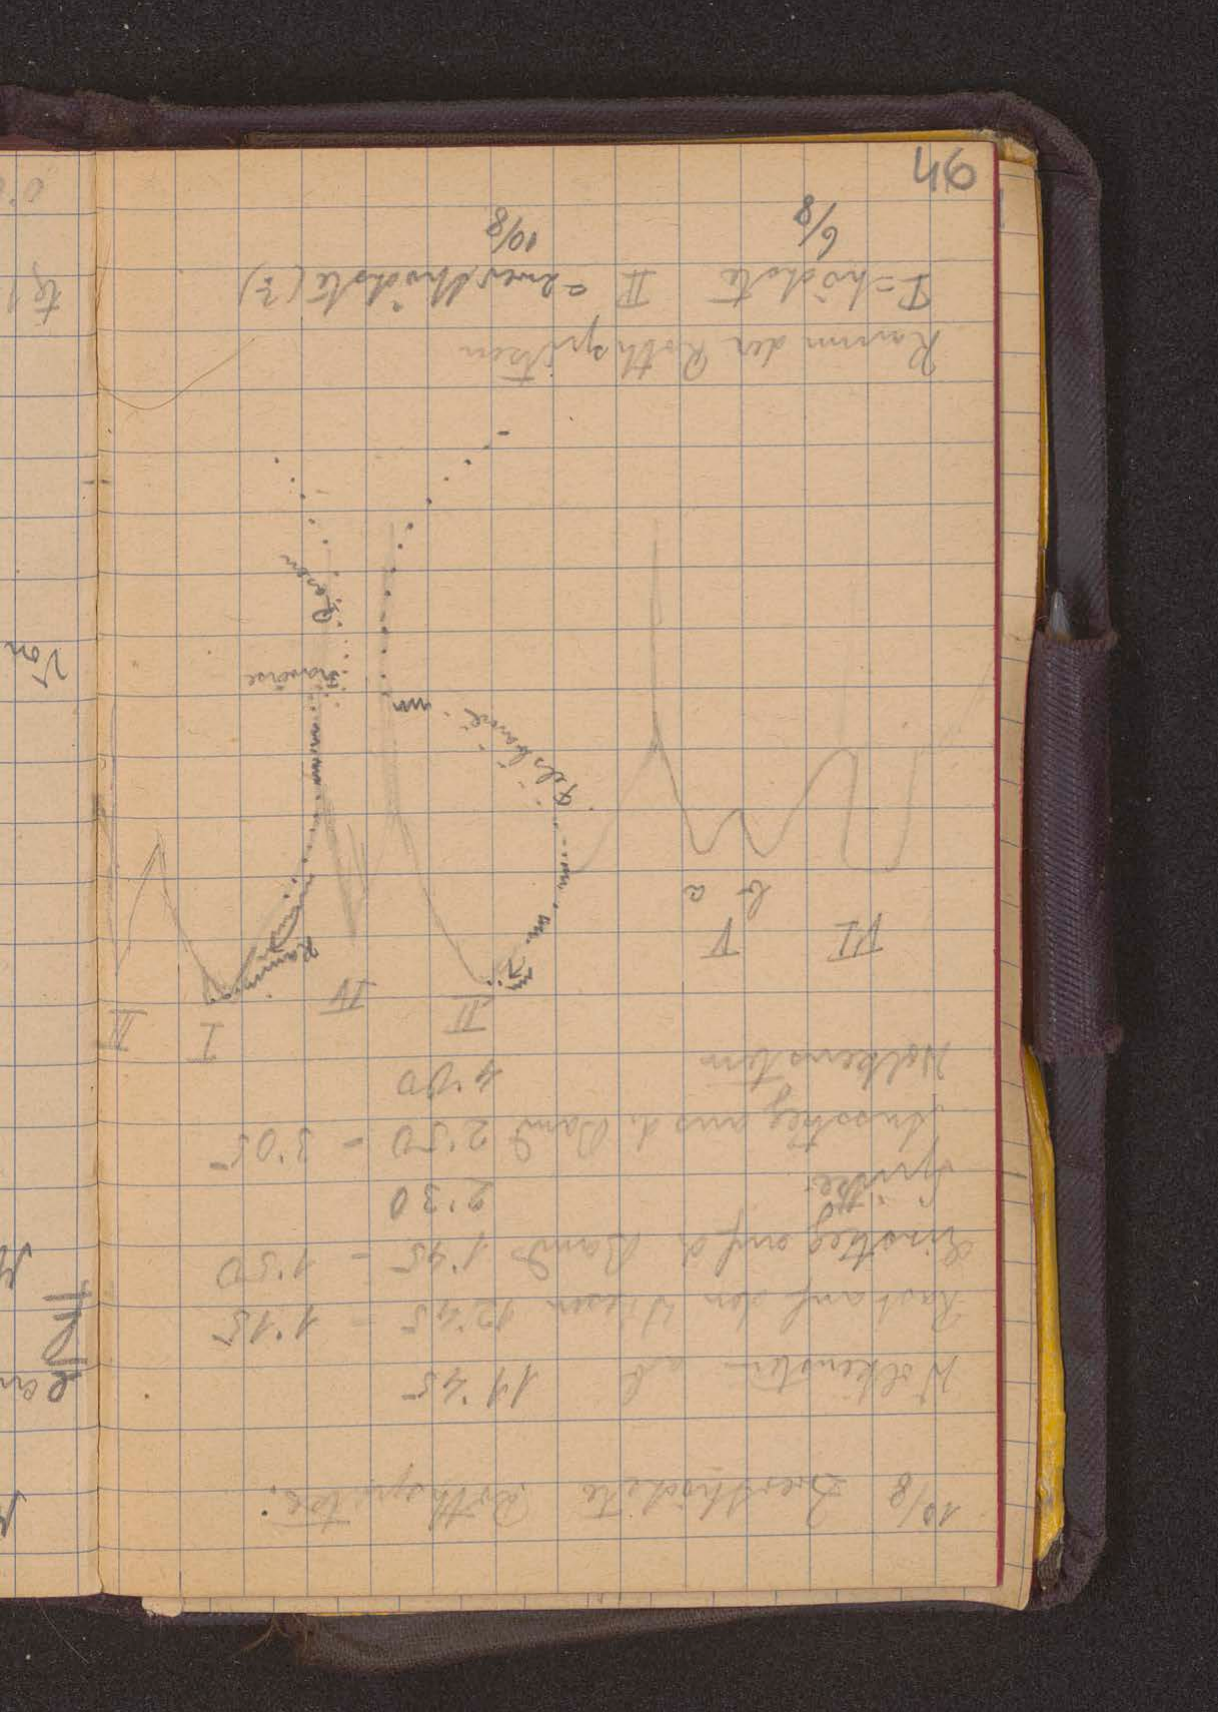 10/8 Zweithöchste Rothspitze.
Wolkenstein ab 11.45
Rast auf den Wiesen 12.45 - 1.15
Einstieg auf d. Band 1.45 - 1.50
Spitze. 2.30
Ausstieg aus d. Band 2.50 - 3.05
Wolkenstein 4.50
VI V II IV I III
b a
Kamin
Felsband
Traverse
Rasen
Kamm der Rothspitzen
I = höchste II = zweithöchste (3)
6/8 10/8
94
Von